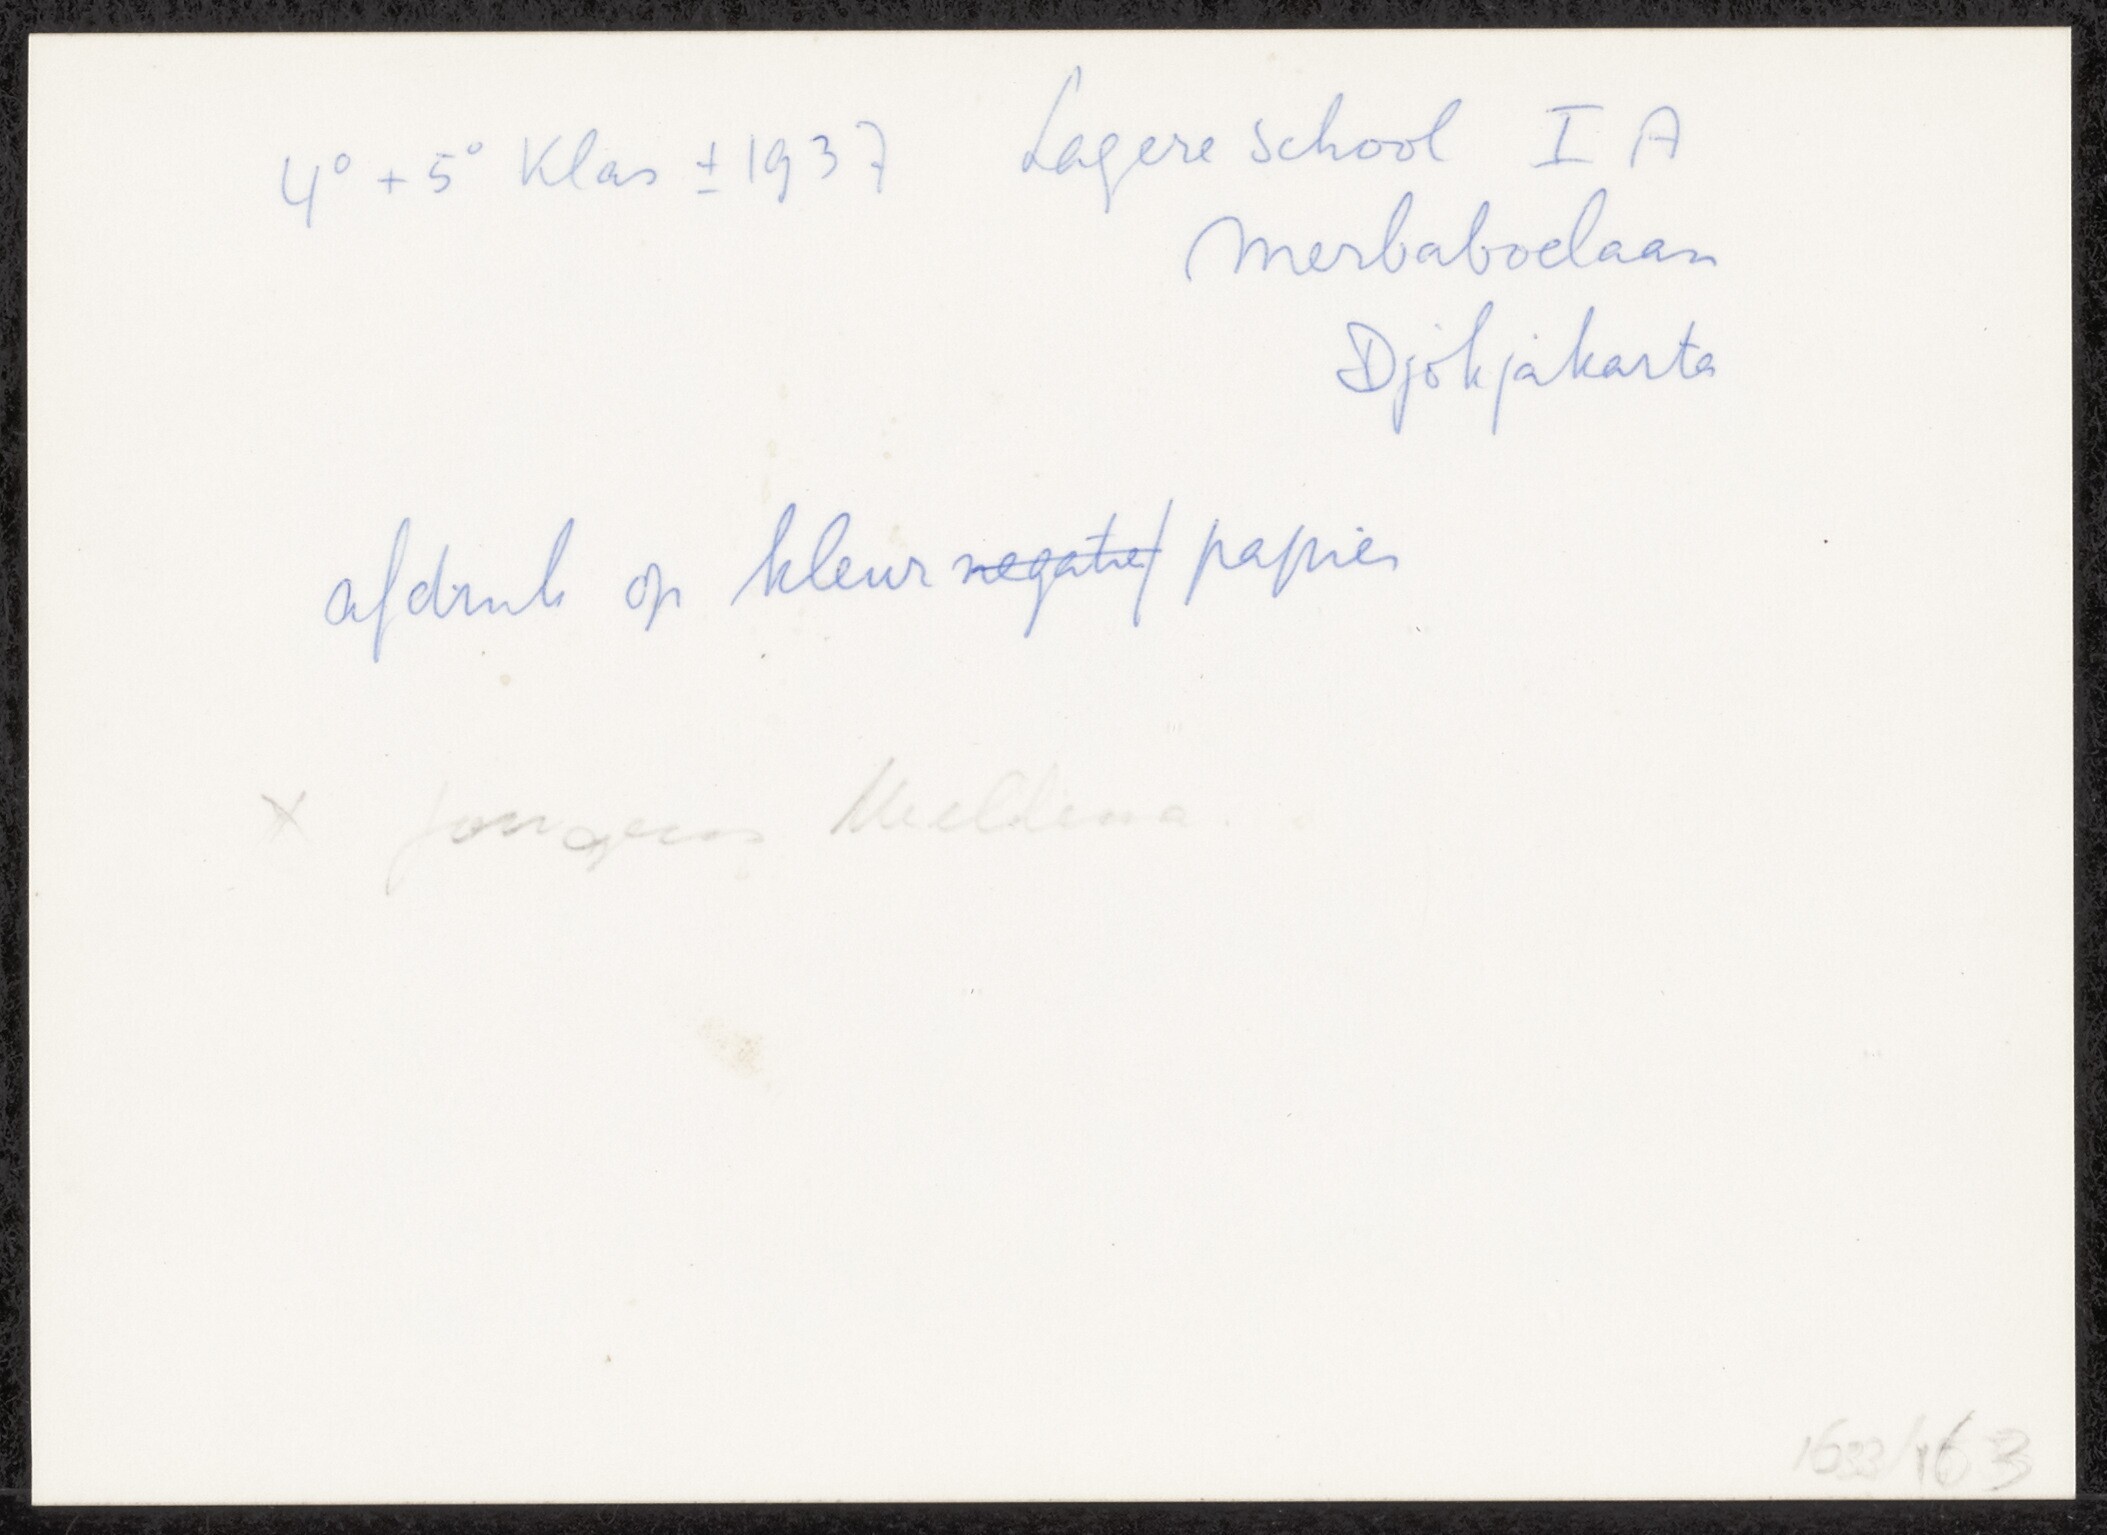 4º + 5º Klas ± 1937 Lagere school I A
Merbaboelaan
Djokjakarta
afdruk op kleur negatief papier
x jongens
1633/163